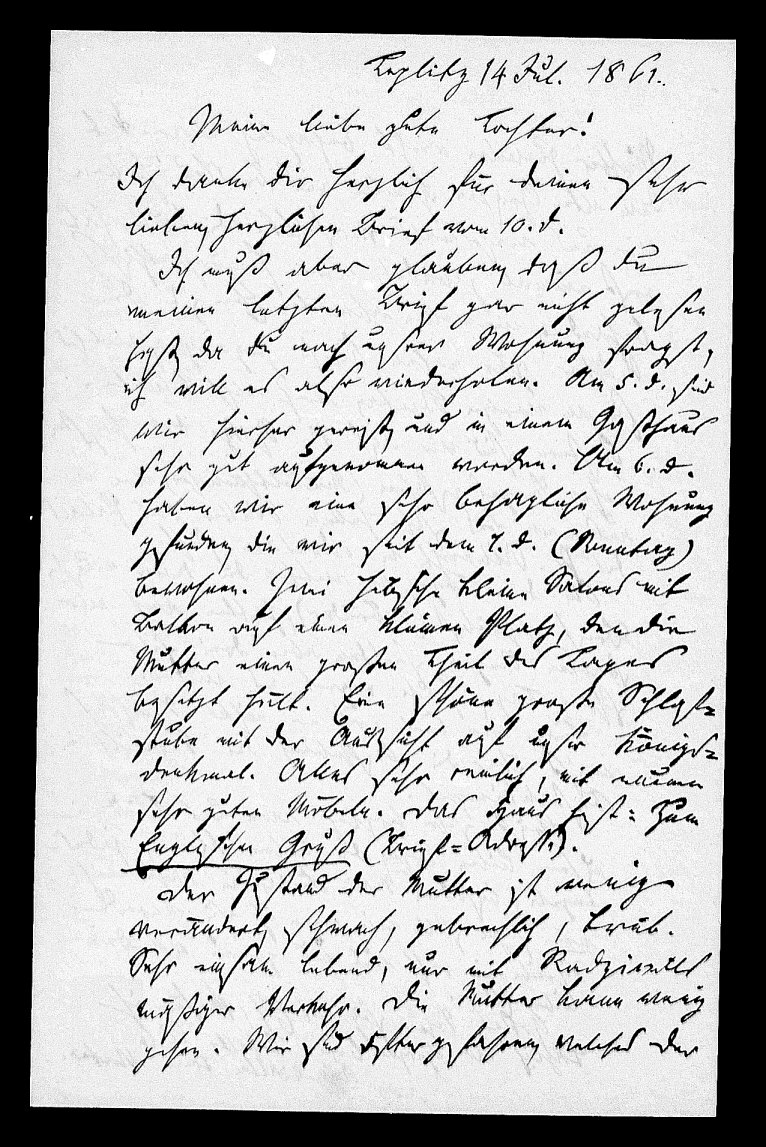 Teplitz 14 Jul. 1861.
Meine liebe gute Tochter!
Ich danke dir herzlich für deinen sehr
lieben, herzlichen Brief vom 10. d.
Ich muß aber glauben, daß du
meinen letzten Brief gar nicht gelesen
hast, da du nach unsrer Wohnung fragst,
ich will es also wiederholen. Am 5. d. sind
wir hierher gereist, und in einem Gasthaus
sehr gut aufgenommen worden. Am 6. d.
haben wir eine sehr behagliche Wohnung
gefunden, die wir seit dem 7. d. (Sonntag)
bewohnen. Zwei hübsche kleine Salons mit
Balkon auf einen kleinen Platz, den die
Mutter einen großen Theil des Tages
besetzt hält. Eine schöne große Schlaf=
stube mit der Aussicht auf unser Königs=
denkmal. Alles sehr reinlich, mit neuen
sehr guten Möbeln. Das Haus heist: Zum
Englischen Gruß (Brief=Adresse).
Der Zustand der Mutter ist wenig
verändert, schwach, gebrechlich, trüb.
Sehr einsam lebend, nur mit Radziwills
mäßiger Verkehr. Die Mutter kann wenig
gehen. Wir sind öfter gefahren, welches der